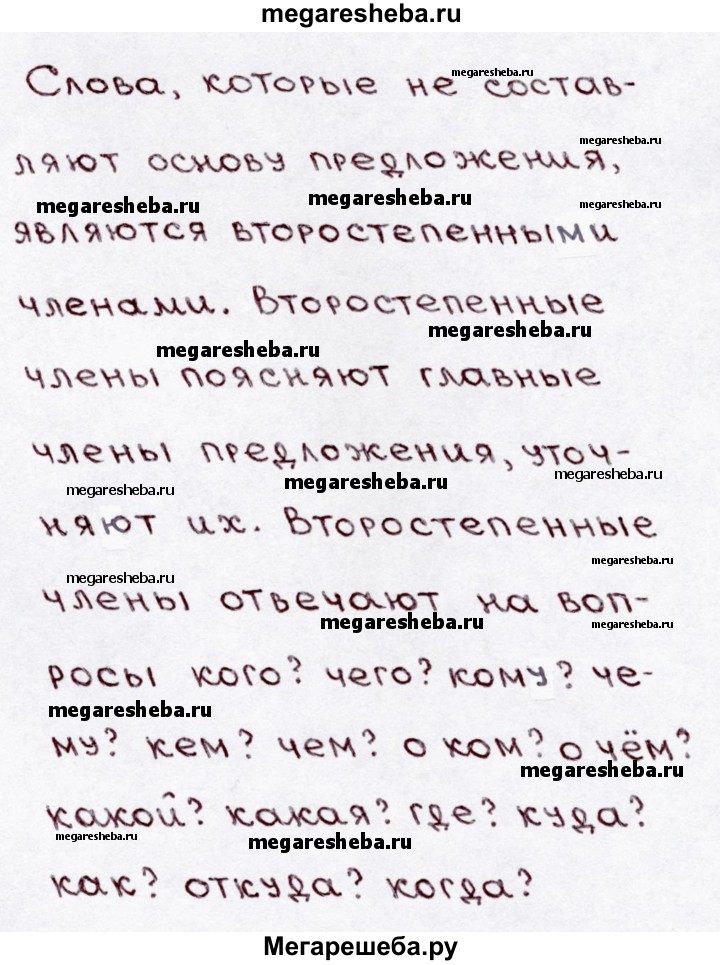 megaresheba.ru
Слова, которые не состав-
megaresheba.ru
ляют основу предложения,
megaresheba.ru
megaresheba.ru
megaresheba.ru
megaresheba.ru
являются второстепенными
членами. Второстепенные
megaresheba.ru
megaresheba.ru
члены поясняют главные
члены предложения, уточ-
megaresheba.ru
megaresheba.ru
megaresheba.ru
няют их. Второстепенные
megaresheba.ru
megaresheba.ru
члены отвечают на воп-
megaresheba.ru
megaresheba.ru
росы кого? чего? кому? че-
megaresheba.ru
му? кем? чем? о ком? о чём?
megaresheba.ru
какой? какая? где? куда?
megaresheba.ru
megaresheba.ru
как? откуда? когда?
Мегарешеба.ру